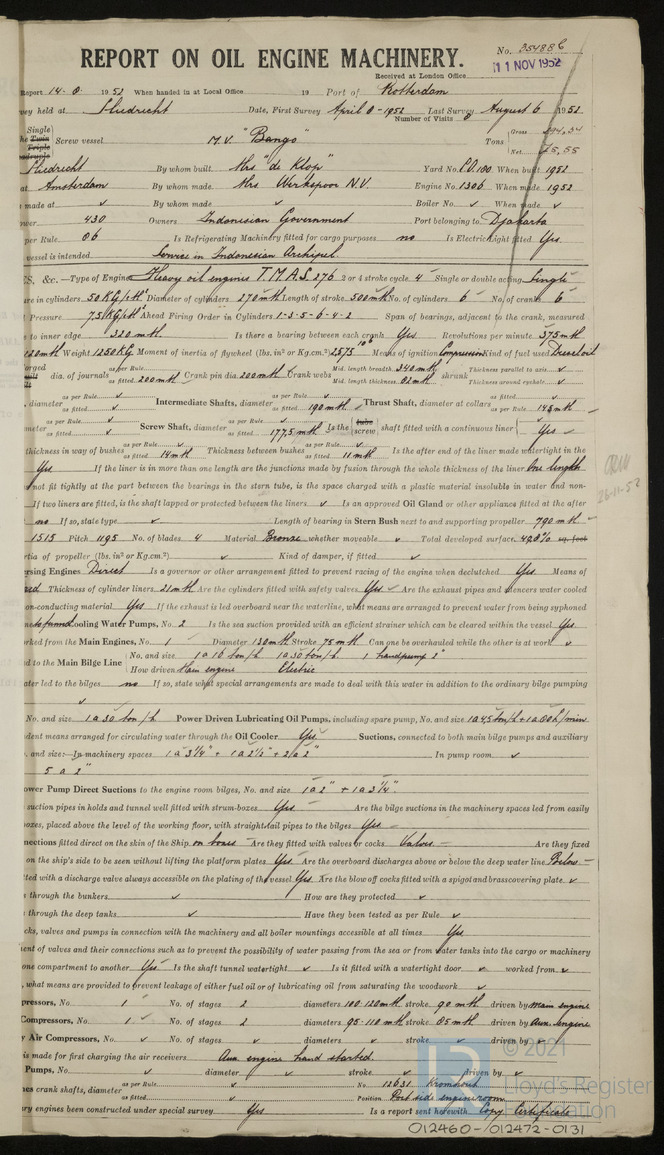 REPORT ON OIL ENGINE MACHINERY.
No. 35488 C
11 NOV 1952
Received at London Office
Report 14. 8 1952 When handed in at Local Office 19 Port of Rotterdam
vey held at Sliedrecht Date, First Survey April 8 - 1952 Last Survey August 6 1952
Number of Visits
Single
Twin
Triple
Screw vessel M.V. "Bango" Tons Gross
Net 75,55
Sliedrecht By whom built Mrs "de Klop" Yard No. When built 1952
at Amsterdam By whom made Mrs Werkspoor N.V. Engine No. 1306 When made 1952
made at ✓ By whom made ✓ Boiler No. ✓ When made ✓
430 Owners Indonesian Government Port belonging to Djakarta
per Rule 86 Is Refrigerating Machinery fitted for cargo purposes no Is Electric Light fitted Yes
vessel is intended Service in Indonesian Archipel.
ES, &c.—Type of Engine Heavy oil engines T.M.A.S. 276 2 or 4 stroke cycle 4 Single or double acting Single
ure in cylinders 50 KG/cm² Diameter of cylinders 270 m/m Length of stroke 500 m/m No. of cylinders 6 No. of cranks 6
Pressure 7,5 KG/cm² Ahead Firing Order in Cylinders 1-3-5-6-4-2 Span of bearings, adjacent to the crank, measured
to inner edge 320 m/m Is there a bearing between each crank Yes Revolutions per minute 375
Weight 1250 KG Moment of inertia of flywheel (lbs. in² or Kg.cm.²) 2575 10⁶ Means of ignition Compression Kind of fuel used Diesel oil
dia. of journals as per Rule ✓ as fitted 200 m/m Crank pin dia. 200 m/m Crank webs Mid. length breadth 340 m/m Mid. length thickness 82 m/m shrunk Thickness parallel to axis ✓ Thickness around eyehole ✓
diameter as per Rule ✓ as fitted ✓ Intermediate Shafts, diameter as per Rule ✓ as fitted 190 m/m Thrust Shaft, diameter at collars as fitted ✓ as per Rule 145 m/m
meter as per Rule ✓ as fitted ✓ Screw Shaft, diameter as per Rule ✓ as fitted 177,5 m/m Is the tube screw shaft fitted with a continuous liner ✓ Yes
thickness in way of bushes as per Rule ✓ as fitted 14 m/m Thickness between bushes as per Rule ✓ as fitted 11 m/m Is the after end of the liner made watertight in the
Yes If the liner is in more than one length are the junctions made by fusion through the whole thickness of the liner One length
not fit tightly at the part between the bearings in the stern tube, is the space charged with a plastic material insoluble in water and non-
If two liners are fitted, is the shaft lapped or protected between the liners ✓ Is an approved Oil Gland or other appliance fitted at the after
no If so, state type ✓ Length of bearing in Stern Bush next to and supporting propeller 790 m/m
1515 Pitch 1195 No. of blades 4 Material Bronze whether moveable ✓ Total developed surface 49,8% sq. feet
rtia of propeller (lbs. in² or Kg.cm.²) ✓ Kind of damper, if fitted ✓
ersing Engines Direct Is a governor or other arrangement fitted to prevent racing of the engine when declutched Yes Means of
Thickness of cylinder liners 21 m/m Are the cylinders fitted with safety valves Yes Are the exhaust pipes and silencers water cooled
on-conducting material Yes If the exhaust is led overboard near the waterline, what means are arranged to prevent water from being syphoned
Cooling Water Pumps, No. 2 Is the sea suction provided with an efficient strainer which can be cleared within the vessel Yes
rked from the Main Engines, No. 1 Diameter 130 m/m Stroke 75 m/m Can one be overhauled while the other is at work ✓
ed to the Main Bilge Line No. and size 1 a 10 ton/h 1 a 30 ton/h 1 handpump 2"
How driven Main engine Electric
ater led to the bilges no If so, state what special arrangements are made to deal with this water in addition to the ordinary bilge pumping
✓
No. and size 1 a 30 ton/h Power Driven Lubricating Oil Pumps, including spare pump, No. and size
dent means arranged for circulating water through the Oil Cooler Yes Suctions, connected to both main bilge pumps and auxiliary
and size:—In machinery spaces 1 a 3¼" + 1 a 2½" + 2 a 2" In pump room ✓
5 a 2"
ower Pump Direct Suctions to the engine room bilges, No. and size 1 a 2" + 1 a 3¼"
suction pipes in holds and tunnel well fitted with strum-boxes Yes Are the bilge suctions in the machinery spaces led from easily
oxes, placed above the level of the working floor, with straight tail pipes to the bilges Yes
nections fitted direct on the skin of the Ship on boxes Are they fitted with valves or cocks Valves Are they fixed
on the ship's side to be seen without lifting the platform plates Yes Are the overboard discharges above or below the deep water line Below
ted with a discharge valve always accessible on the plating of the vessel Yes Are the blow off cocks fitted with a spigot and brass covering plate ✓
through the bunkers ✓ How are they protected ✓
through the deep tanks ✓ Have they been tested as per Rule ✓
cks, valves and pumps in connection with the machinery and all boiler mountings accessible at all times Yes
ent of valves and their connections such as to prevent the possibility of water passing from the sea or from water tanks into the cargo or machinery
one compartment to another Yes Is the shaft tunnel watertight ✓ Is it fitted with a watertight door ✓ worked from ✓
, what means are provided to prevent leakage of either fuel oil or of lubricating oil from saturating the woodwork ✓
pressors, No. 1 No. of stages 2 diameters 100-120 m/m stroke 90 m/m driven by Main engine
Compressors, No. 1 No. of stages 2 diameters 95-110 m/m stroke 85 m/m driven by Aux. engine
y Air Compressors, No. ✓ No. of stages ✓ diameters ✓ stroke ✓ driven by ✓
is made for first charging the air receivers Aux engine hand started
Pumps, No. ✓ diameter ✓ stroke ✓ driven by ✓
nes crank shafts, diameter as per Rule ✓ as fitted ✓ No 12631 Kromhout
Position Port side engineroom
ry engines been constructed under special survey Yes Is a report sent herewith Copy Certificate
© 2021
Lloyd's Register
Foundation
012460-012472-0131